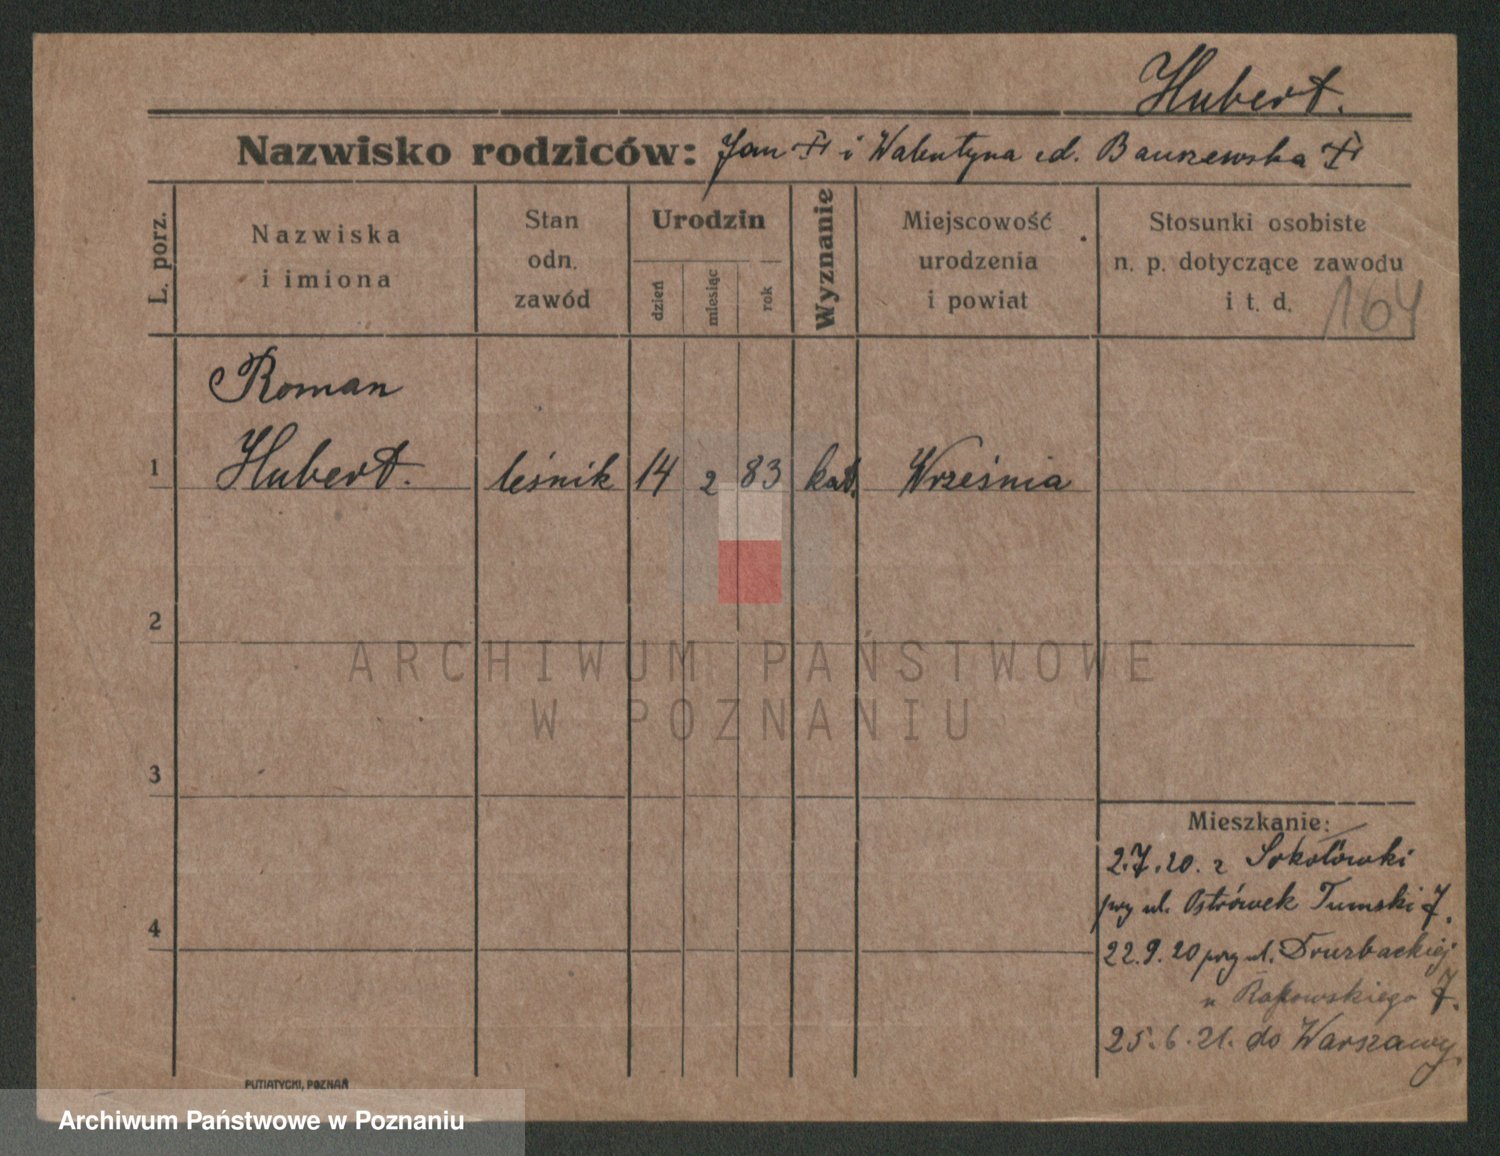 Hubert.
Nazwisko rodziców: Jan i Walentyna
L. porz.
Nazwiska
i imiona
Stan
odn.
zawód
Urodzin
dzień
miesiąc
rok
Wyznanie
Miejscowość
urodzenia
i powiat
Stosunki osobiste
n. p. dotyczące zawodu
i t. d.
164
Roman
1 Hubert. leśnik 14 2 83 kat. Września
2
3
4
Mieszkanie:
2.7.20. z Sokołówki
przy ul. Ostrówek Tumski 7.
22.9.20 przy ul.
u Rakowskiego 7.
25.6.21. do Warszawy.
PUTIATYCKI, POZNAŃ
ARCHIWUM PAŃSTWOWE
W POZNANIU
Archiwum Państwowe w Poznaniu